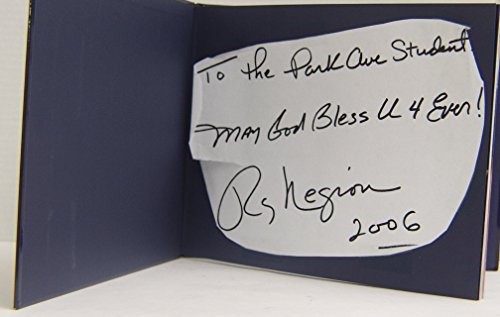 To the Park Ave Student
May God Bless U 4 Ever!
Ray Negron
2006